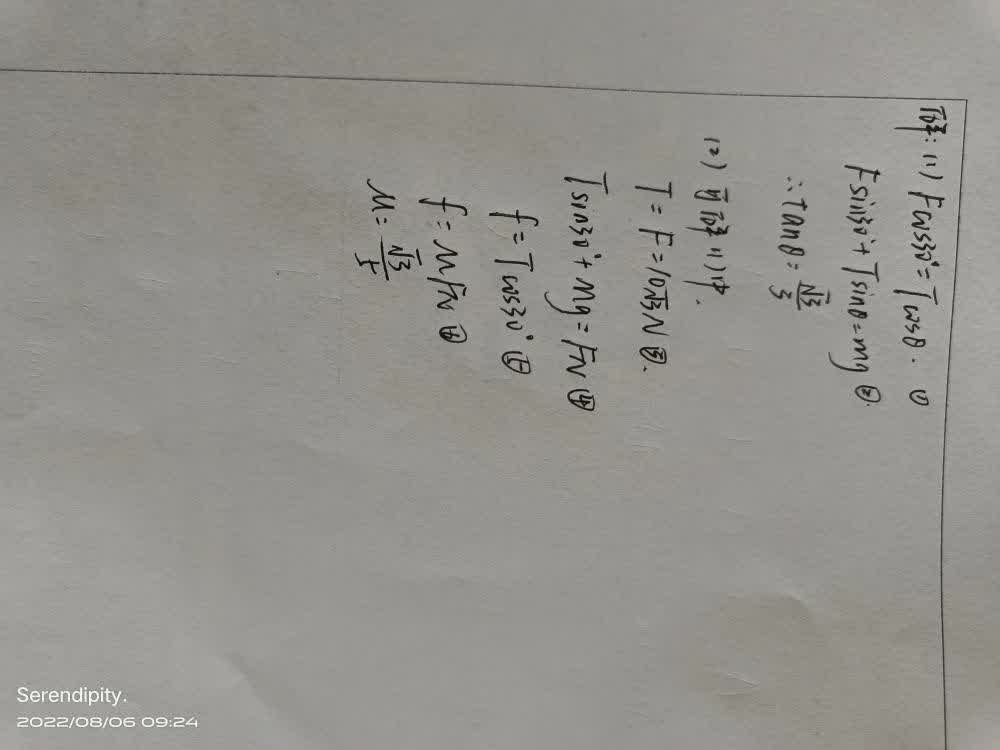 解: (1) Fcos30°=Tcosθ. ①
Fsin30°+Tsinθ=mg ②.
∴tanθ=√3/3
(2) 由解(1)中.
T=F=10√3N ③.
Tsin30°+Mg=FN ④
f=Tcos30° ⑤
f=μFN ⑥
μ=√3/5
Serendipity.
2022/08/06 09:24